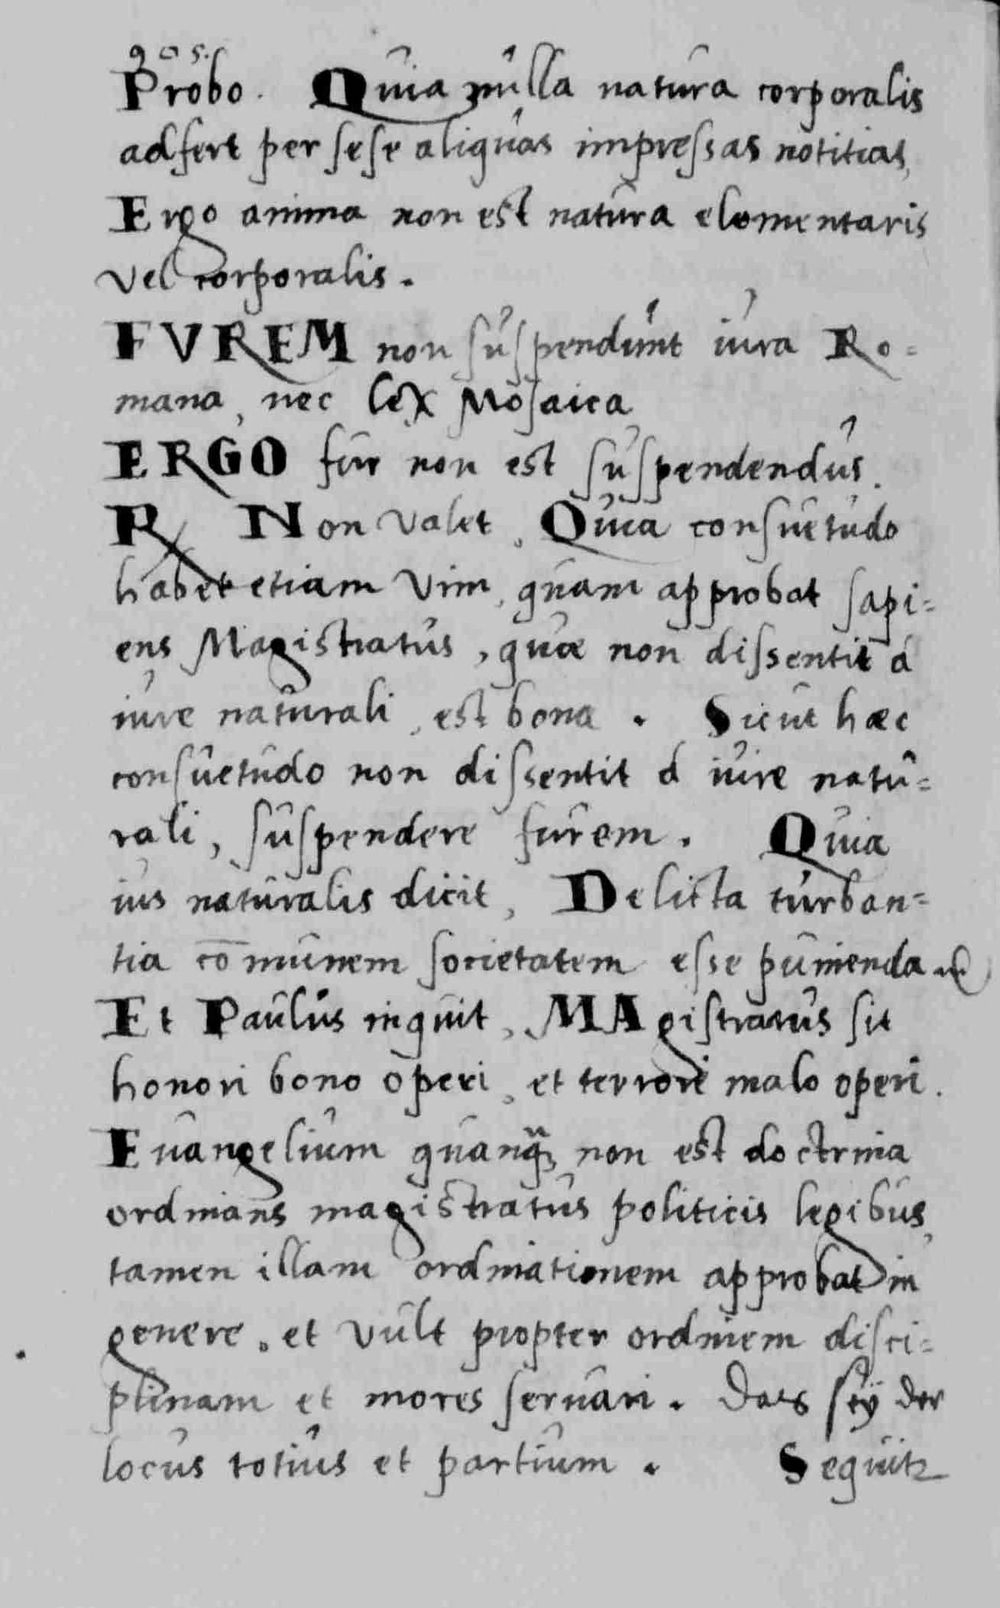 905.
Probo. Quia nulla natura corporalis
adfert per sese aliquas impressas notitias,
Ergo anima non est natura elementaris
vel corporalis.
FVREM non suspendunt iura Ro=
mana, nec lex Mosaica
ERGO fur non est suspendendus.
R Non valet, Quia consuetudo
habet etiam vim, quam approbat sapi=
ens Magistratus, quæ non dissentit á
iure naturali, est bona. Sicut hæc
consuetudo non dissentit á iure natu=
rali, suspendere furem. Quia
ius naturalis dicit, Delicta turban=
tia co̅munem societatem esse punienda
Et Paulus inquit, MAgistratus sit
honori bono operi, et terrori malo operi.
Euangelium quanq̃ non est doctrina
ordinans magistratus politicis legibus,
tamen illam ordinationem approbat in
genere, et vult propter ordinem disci=
plinam et mores seruari. Das sey der
locus totius et partium. Sequitr